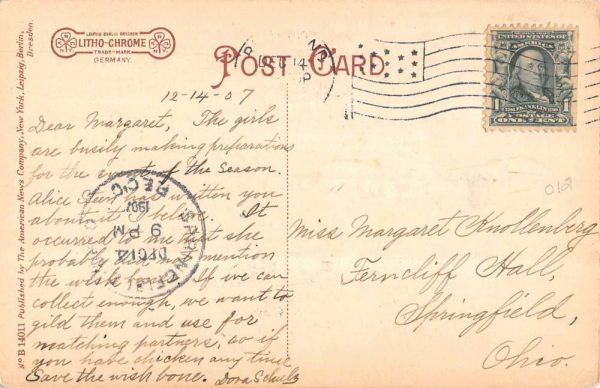 LEIPZIG BERLIN DRESDEN
LITHO-CHROME
TRADE-MARK
GERMANY.
POST CARD
DEC 14
UNITED STATES OF AMERICA
FRANKLIN
POSTAGE
ONE CENT
12-14-07
Dear Margaret, The girls
are busily making preparations
for the event of the Season.
Alice has written you
about it I believe. It
occurred to me that she
probably did not mention
the wish bones. If we can
collect enough, we want to
gild them and use for
matching partners, so if
you have chicken any time
Save the wish bone. Dora Schulz
SPRINGFIELD
DEC 14
9 PM
1907
REC'D
012
Miss Margaret Knollenberg
Ferncliff Hall,
Springfield,
Ohio.
No B 14011 Published by The American News Company, New York, Leipzig, Berlin,
Dresden.